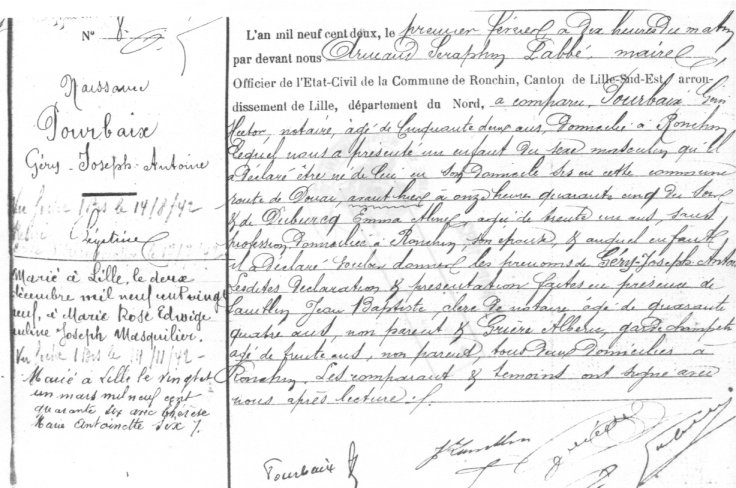 N° 8
Naissance
Pourbaix
Géry-Joseph-Antoine
le 14/8/42
Légitime
Marié à Lille, le deux
décembre mil neuf cent vingt
neuf, à Marie Rose Edwige
Joseph Masquilier.
14/11/42
Marié à Lille le vingt et
un mars mil neuf cent
quarante six avec Thérèse
Marie Antoinette Six
L'an mil neuf cent deux, le premier février à dix heures du matin
par devant nous Armand Séraphin Labbé, maire
Officier de l'Etat-Civil de la Commune de Ronchin, Canton de Lille-Sud-Est, arron-
dissement de Lille, département du Nord, a comparu Pourbaix Géry
Hector, notaire, âgé de Cinquante deux ans, domicilié à Ronchin
lequel nous a présenté un enfant du sexe masculin qu'il
a déclaré être né de lui en son domicile sis en cette commune
route de Douai, avant hier à onze heures quarante cinq du soir
& de Duburcq Emma âgée de trente un ans, sans
profession, domiciliée à Ronchin, son épouse, & auquel enfant
il a déclaré vouloir donner les prénoms de Géry-Joseph-Antoine
Lesdites déclaration & présentation faites en présence de
Jean Baptiste, clerc de notaire âgé de quarante
quatre ans, non parent & Albert, garde champêtre
âgé de trente ans, non parent, tous deux domiciliés à
Ronchin. Les comparant & témoins ont signé avec
nous après lecture
Pourbaix